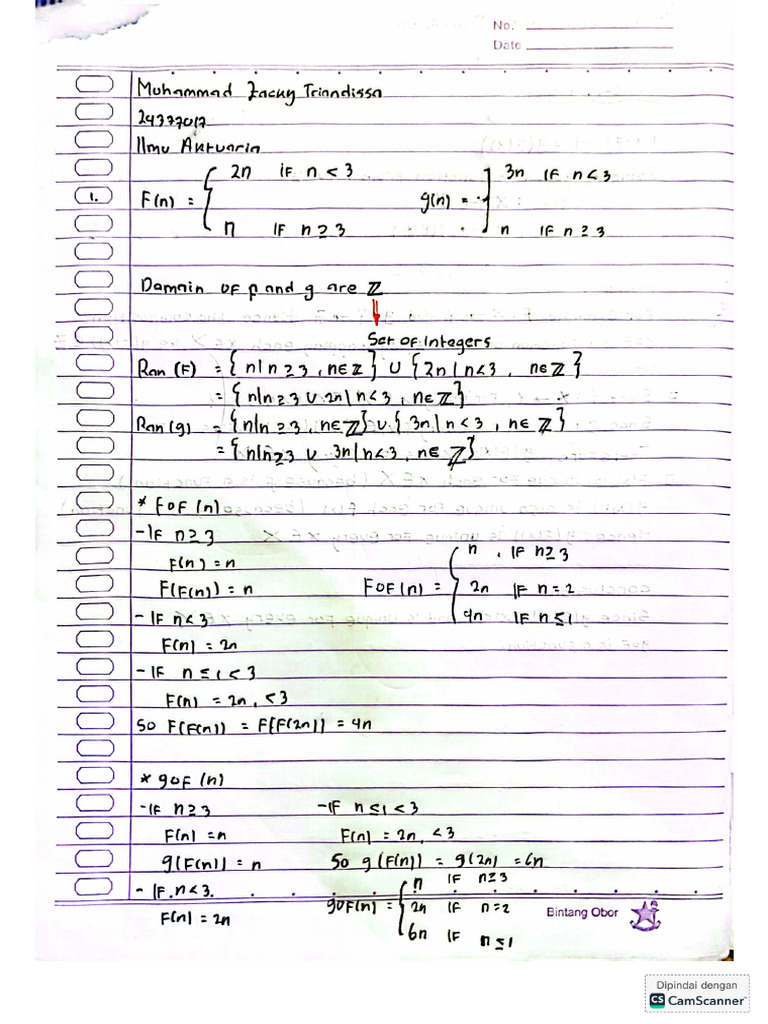 No.
Date
Muhammad Zacky Triandissa
24337017
Ilmu Aktuaria
1. F(n) = { 2n if n < 3 g(n) = { 3n if n < 3
n if n ≥ 3 n if n ≥ 3
Domain of f and g are ℤ
Set of Integers
Ran (F) = {n | n ≥ 3, n ∈ ℤ} ∪ {2n | n < 3, n ∈ ℤ}
= {n | n ≥ 3 ∪ 2n | n < 3, n ∈ ℤ}
Ran (g) = {n | n ≥ 3, n ∈ ℤ} ∪ {3n | n < 3, n ∈ ℤ}
= {n | n ≥ 3 ∪ 3n | n < 3, n ∈ ℤ}
* FOF (n)
- IF n ≥ 3
F(n) = n
F(F(n)) = n
FOF(n) = { n, IF n ≥ 3
2n IF n = 2
4n IF n ≤ 1
- IF n < 3
F(n) = 2n
- IF n ≤ 1 < 3
F(n) = 2n, < 3
So F(F(n)) = F(F(2n)) = 4n
* gOF (n)
- IF n ≥ 3
F(n) = n
g(F(n)) = n
- IF n < 3
F(n) = 2n
- IF n ≤ 1 < 3
F(n) = 2n, < 3
So g(F(n)) = g(2n) = 6n
gOF(n) = { n IF n ≥ 3
2n IF n = 2
6n IF n ≤ 1
Bintang Obor
Dipindai dengan
CS CamScanner